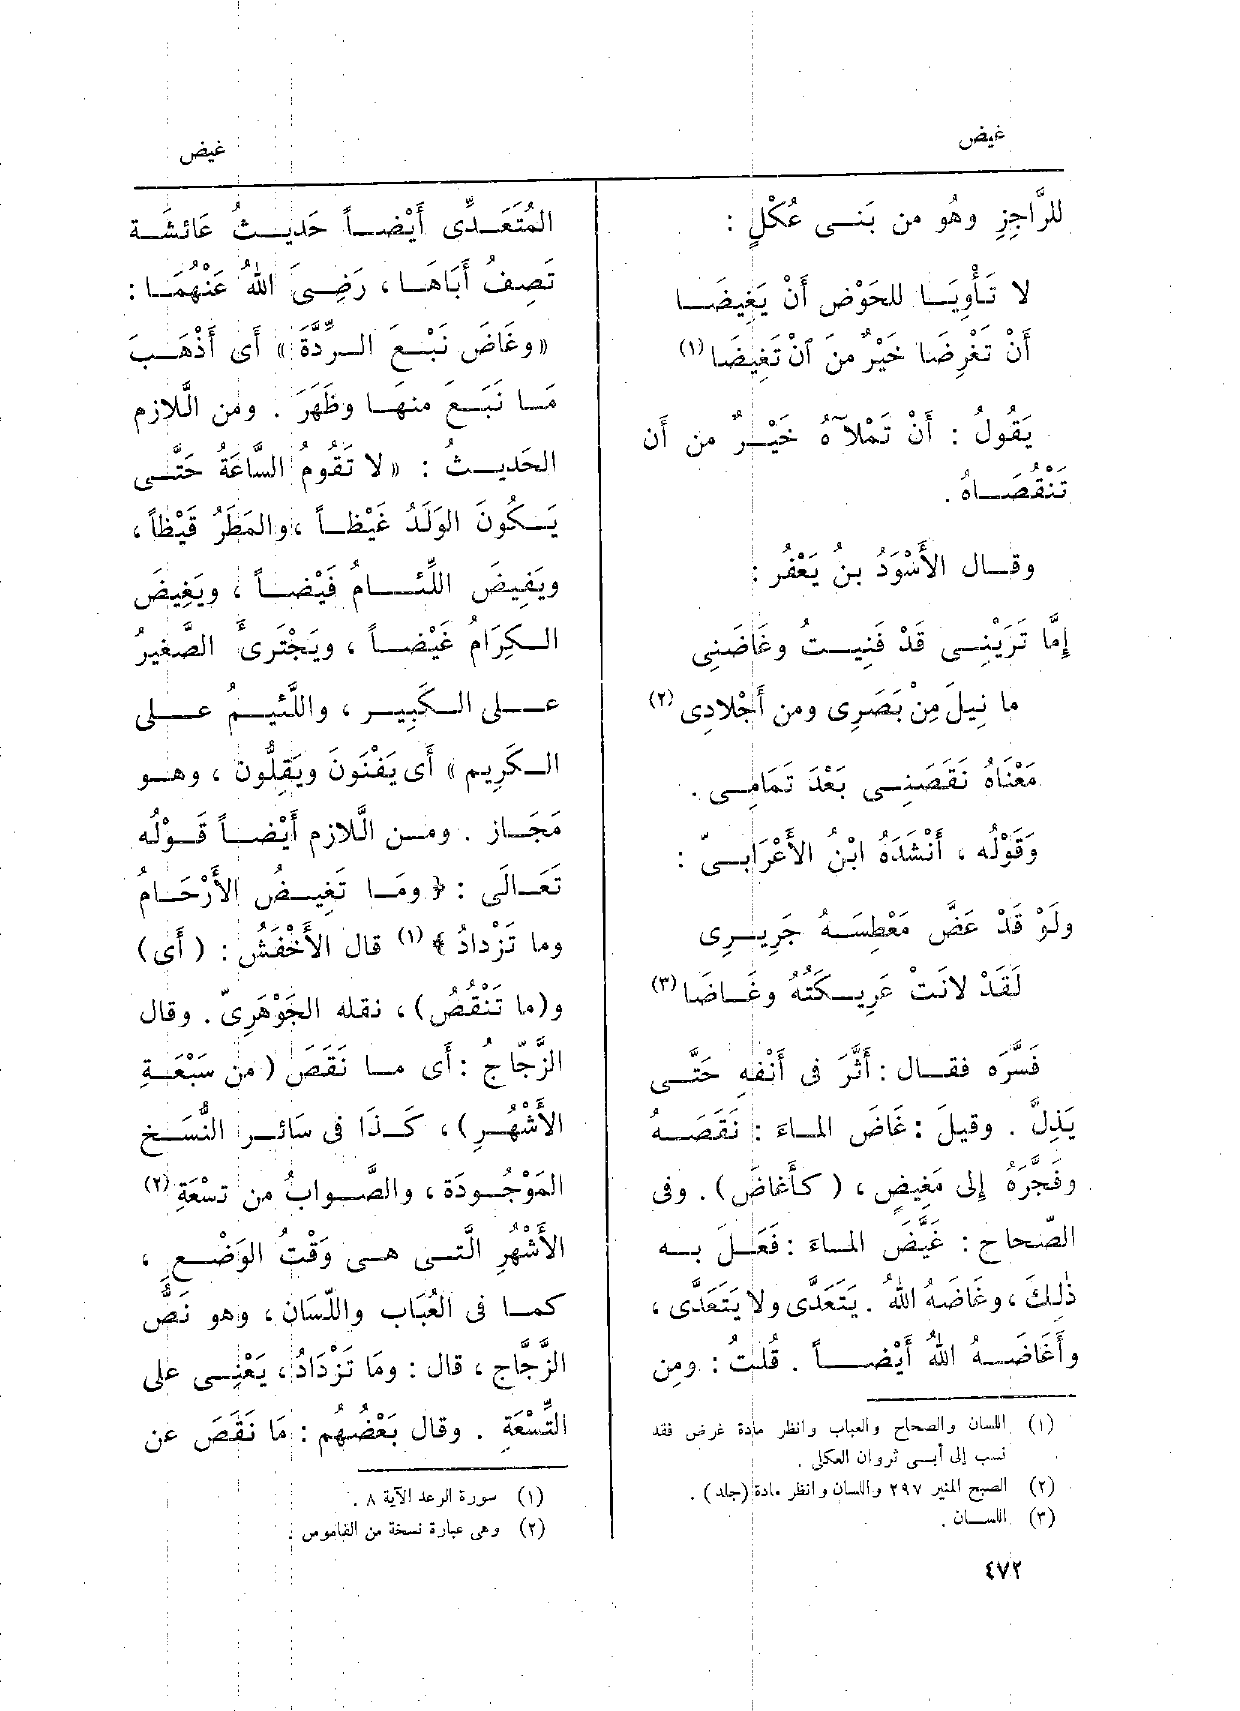 غيض
غيض
للرَّاجِزِ وهُو من بَنـى عُكْلٍ :
لا تَأْوِيَـا للحَوْضِ أَنْ يَغِيضَـا
أَنْ تَغْرِضَا خَيْرٌ منَ انْ تَغِيضَا (١)
يَقُولُ : أَنْ تَمْلَآهُ خَيْـرٌ من أَن
تَنْقُصَـاهُ .
وقـال الأَسْوَدُ بنُ يَعْفُر :
إِمَّا تَرَيْنِـى قَدْ فَنِيتُ وغَاضَنِى
ما نِيلَ مِنْ بَصَرِى ومن أَجْلادِى (٢)
مَعْنَاهُ نَقَصَنِـى بَعْدَ تَمَامِـى .
وَقَوْلُه ، أَنْشَدَهُ ابْنُ الأَعْرَابـىّ :
ولَوْ قَدْ عَضَّ مَعْطِسَـهُ جَرِيـرِى
لَقَدْ لانَتْ عَرِيـكَتُهُ وغَـاضَا (٣)
فَسَّرَه فقـال : أَثَّرَ فى أَنْفِه حَتَّـى
يَذِلَّ . وقيلَ : غَاضَ المـاءَ : نَقَصَـهُ
وفَجَّرَهُ إِلى مَغِيضٍ ، (كأَغاضَ) . وفى
الصّحاح : غَيَّضَ المـاءَ : فَعَلَ بـه
ذٰلِكَ ، وغَاضَهُ اللهُ . يَتَعَدَّى ولا يَتَعَدَّى ،
وأَغَاضَـهُ اللهُ أَيْضـاً . قُلتُ : ومِن
(١) اللسان والصحاح والعباب وانظر مادة غرض فقد
نسب إلى أبـى ثروان العكلى .
(٢) الصبح المنير ٢٩٧ واللسان وانظر مادة (جلد) .
(٣) اللسـان .
المُتَعَـدِّى أَيْضـاً حَديـثُ عَائشَـة
تَصِفُ أَبَاهَـا ، رَضِـىَ اللهُ عَنْهُمَـا :
«وغَاضَ نَبْـعَ الـرِّدَّةِ» أَى أَذْهَـبَ
مَـا نَبَـعَ منهَـا وظَهَرَ . ومن الَّلازم
الحَديـثُ : «لا تَقُومُ السَّاعَةُ حَتَّـى
يَـكُونَ الوَلَدُ غَيْظـاً ، والمَطَرُ قَيْظاً ،
ويَفِيضَ اللِّئـامُ فَيْضـاً ، ويَغِيضَ
الـكِرَامُ غَيْضـاً ، ويَجْتَرِئَ الصَّغيرُ
عـلى الـكَبِيـر ، واللَّئيـمُ عـلى
الـكَرِيم» أَى يَفْنَوْنَ ويَقِلُّون ، وهـو
مَجَـاز . ومـن الَّلازم أَيْضـاً قَـوْلُه
تَعَـالَى : ﴿ ومَـا تَغِيـضُ الأَرْحَـامُ
وما تَزْدادُ ﴾ (١) قال الأَخْفَشُ : (أَى)
و(ما تَنْقُصُ) ، نقله الجَوْهَرِىّ . وقال
الزَّجّاجُ : أَى مـا نَقَصَ (من سَبْعَـةِ
الأَشْهُرِ) ، كَـذَا فى سَائـرِ النُّسَـخِ
المَوْجُـودَة ، والصَّـوابُ من تِسْعَةِ (٢)
الأَشْهُرِ الَّتـى هـى وَقْتُ الوَضْـعِ ،
كمـا فى العُبَاب واللّسَان ، وهو نَصُّ
الزَّجَّاج ، قال : ومَا تَزْدَادُ ، يَعْنِـى على
التِّسْعَةِ . وقال بَعْضُهُم : مَا نَقَصَ عن
(١) سورة الرعد الآية ٨ .
(٢) وهى عبارة نسخة من القاموس .
٤٧٢